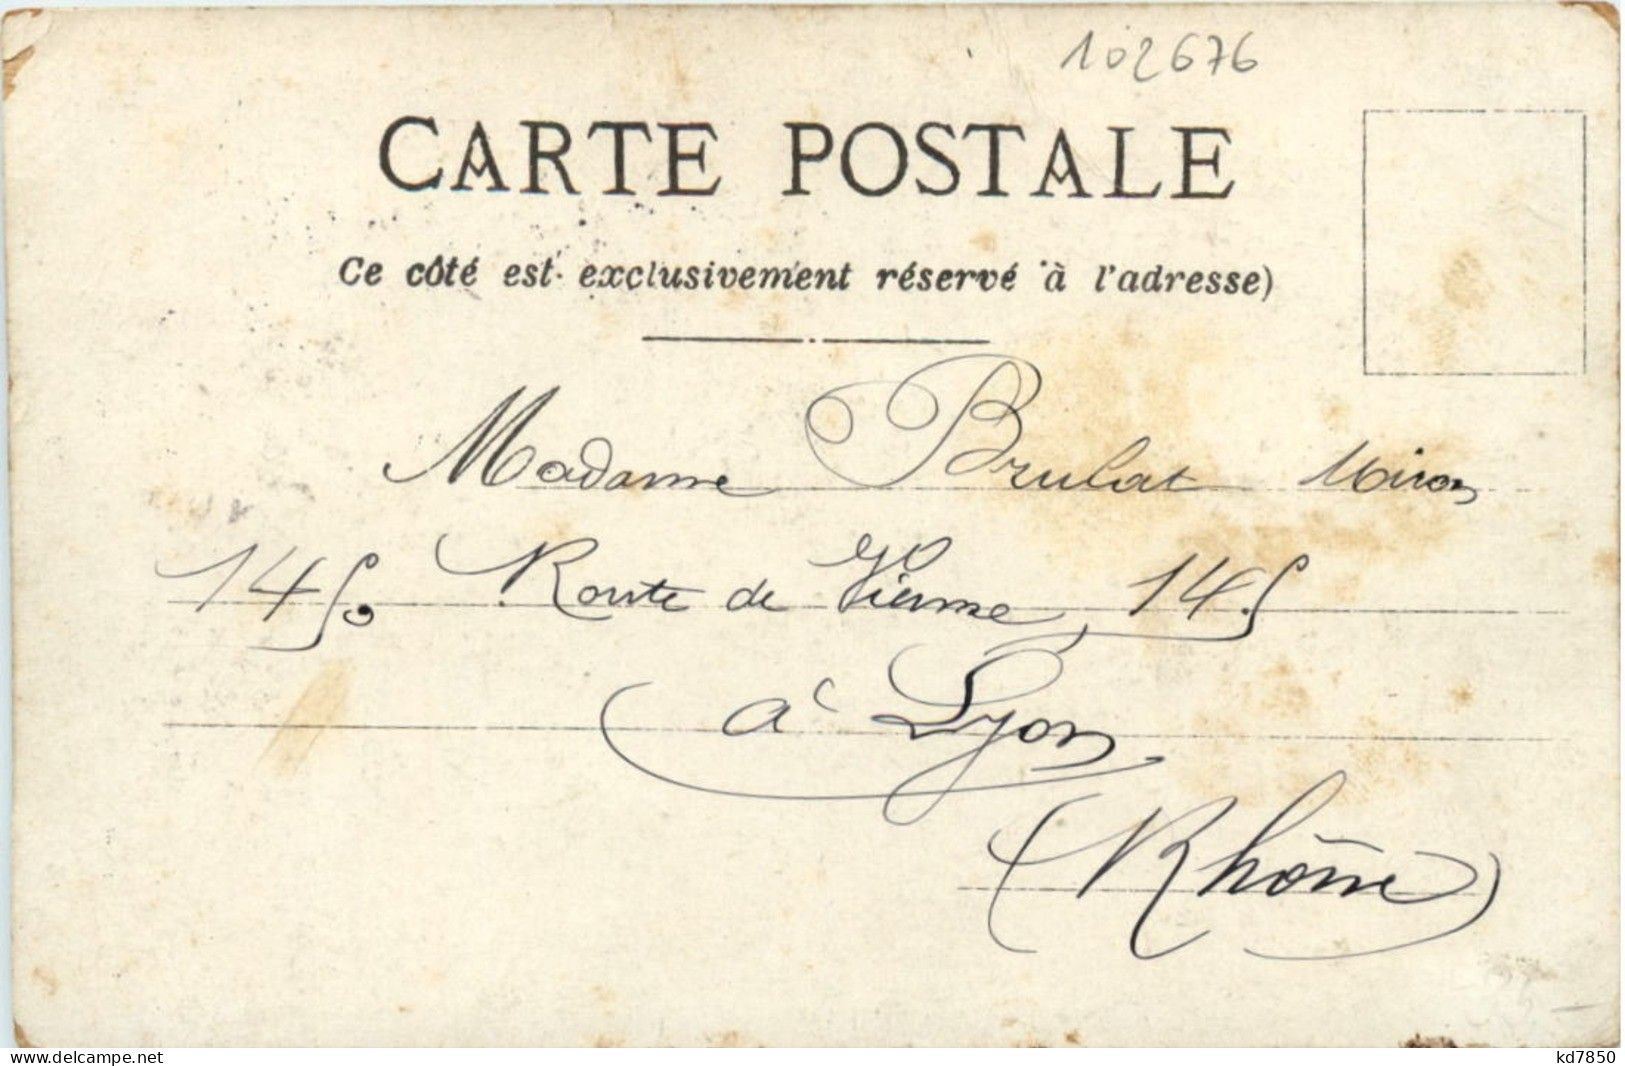 102676
CARTE POSTALE
Ce côté est exclusivement réservé à l'adresse)
Madame Brulat Miron
145. Route de Vienne, 145
à Lyon
(Rhône)
www.delcampe.net
kd7850